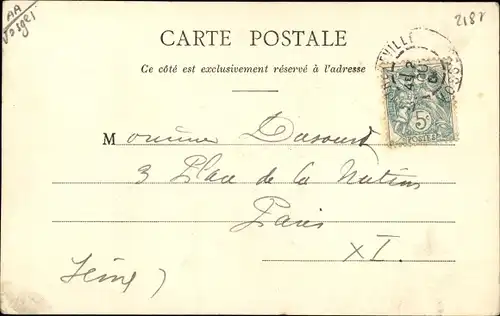 AA
Vosges
2187
CARTE POSTALE
Ce côté est exclusivement réservé à l'adresse
5c
POSTES
Monsieur Dusourd
3 Place de la Nation
Paris
XI.
(Seine)